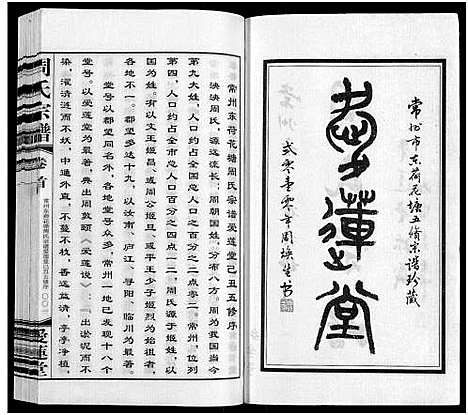 常州市东荷花塘五修宗谱珍藏
爱莲堂
贰零壹零年周焕生书
常州东荷花塘周氏宗谱爱莲堂己丑五修序
泱泱周氏，源远流长，周朝国姓，分布八方。周为我国当今
第九大姓，人口约占全国总人口百分之二点零二。常州周姓，位列
第四，人口约占全市总人口百分之四点一二。周氏源于姬姓，以
国为姓。有以文王姬昌、或周公姬旦、或平王少子姬烈为始祖者，
各地不一。郡望多达十九，以汝南、庐江、寻阳、临川为最有名。
堂号以郡望同名外，各地堂号众多，常州一地已发现四十个，
堂号以爱莲堂为最，典出周敦颐《爱莲说》：﹁出淤泥而不
染，濯清涟而不妖，中通外直，不蔓不枝，香远益清，亭亭净植，
周氏宗谱
卷首
常州东荷花塘周氏宗谱爱莲堂己丑五修序
爱莲堂